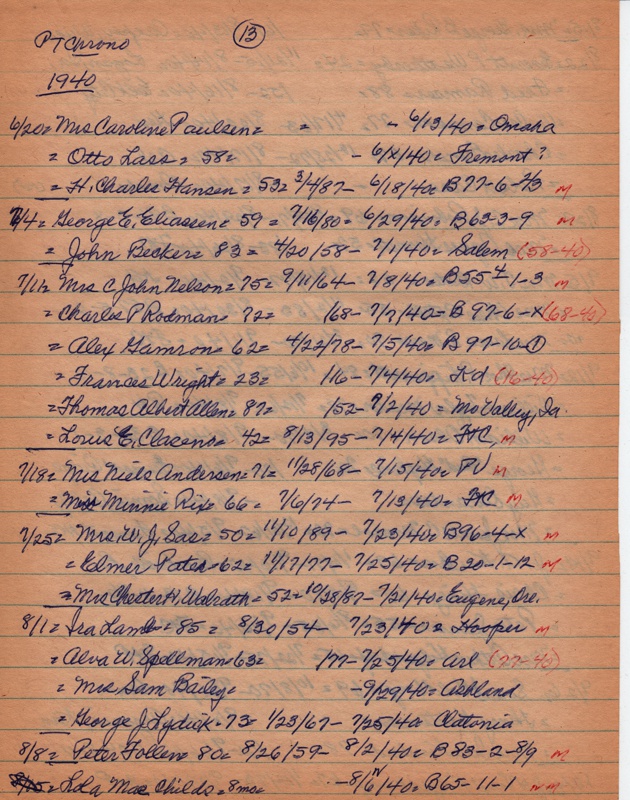 PT Chrono (13)
1940
6/20= Mrs Caroline Paulsen= = - 6/13/40= Omaha
= Otto Lass = 58= - 6/X/40= Fremont?
= H. Charles Hansen = 53= 3/4/87- 6/18/40= B77-6-2/3 m
7/4= George E. Eliassen= 59 = 7/16/80= 6/29/40= B63-3-9 m
= John Becker= 83= 4/20/58- 7/1/40= Salem (58-40)
7/11= Mrs C John Nelson= 75= 9/11/64- 7/8/40= B55 1-3 m
= Charles P Rodman= 72= /68- 7/7/40= B 97-6-X (68-40)
= Alex Gamron= 62= 4/22/78- 7/5/40= B 97-10-1
= Frances Wright= 23= /16- 7/4/40= Kd (16-40)
= Thomas Albert Allen= 87= /52- 7/2/40= Mo Valley, Ia.
= Louis E. = 42= 8/13/95- 7/4/40= m
7/18= Mrs Niels Andersen= 71= 11/28/68- 7/15/40= PV m
= Miss Minnie Rix= 66= 7/6/74- 7/13/40= m
7/25= Mrs. W. J. Sas= 50= 11/10/89- 7/23/40= B96-4-X m
= Elmer Pates= 62= 11/17/77- 7/25/40= B20-1-12 m
= Mrs Chester H. Walrath= 52= 10/28/87- 7/21/40= Eugene, Ore.
8/1= Ira Lamb= 85= 8/30/54- 7/23/40= Hooper m
= Alva W. Spellman= 63= /77- 7/25/40= Arl (77-40)
= Mrs Sam Bailey= -9/29/40= Ashland
= George J. Lydick= 73= 1/23/67- 7/25/40= Clatonia
8/8= Peter Follen= 80= 8/26/59- 8/2/40= B83-2-8/9 m
8/15= Lola Mae Childs= 8mo= -8/6/40= B65-11-1 m